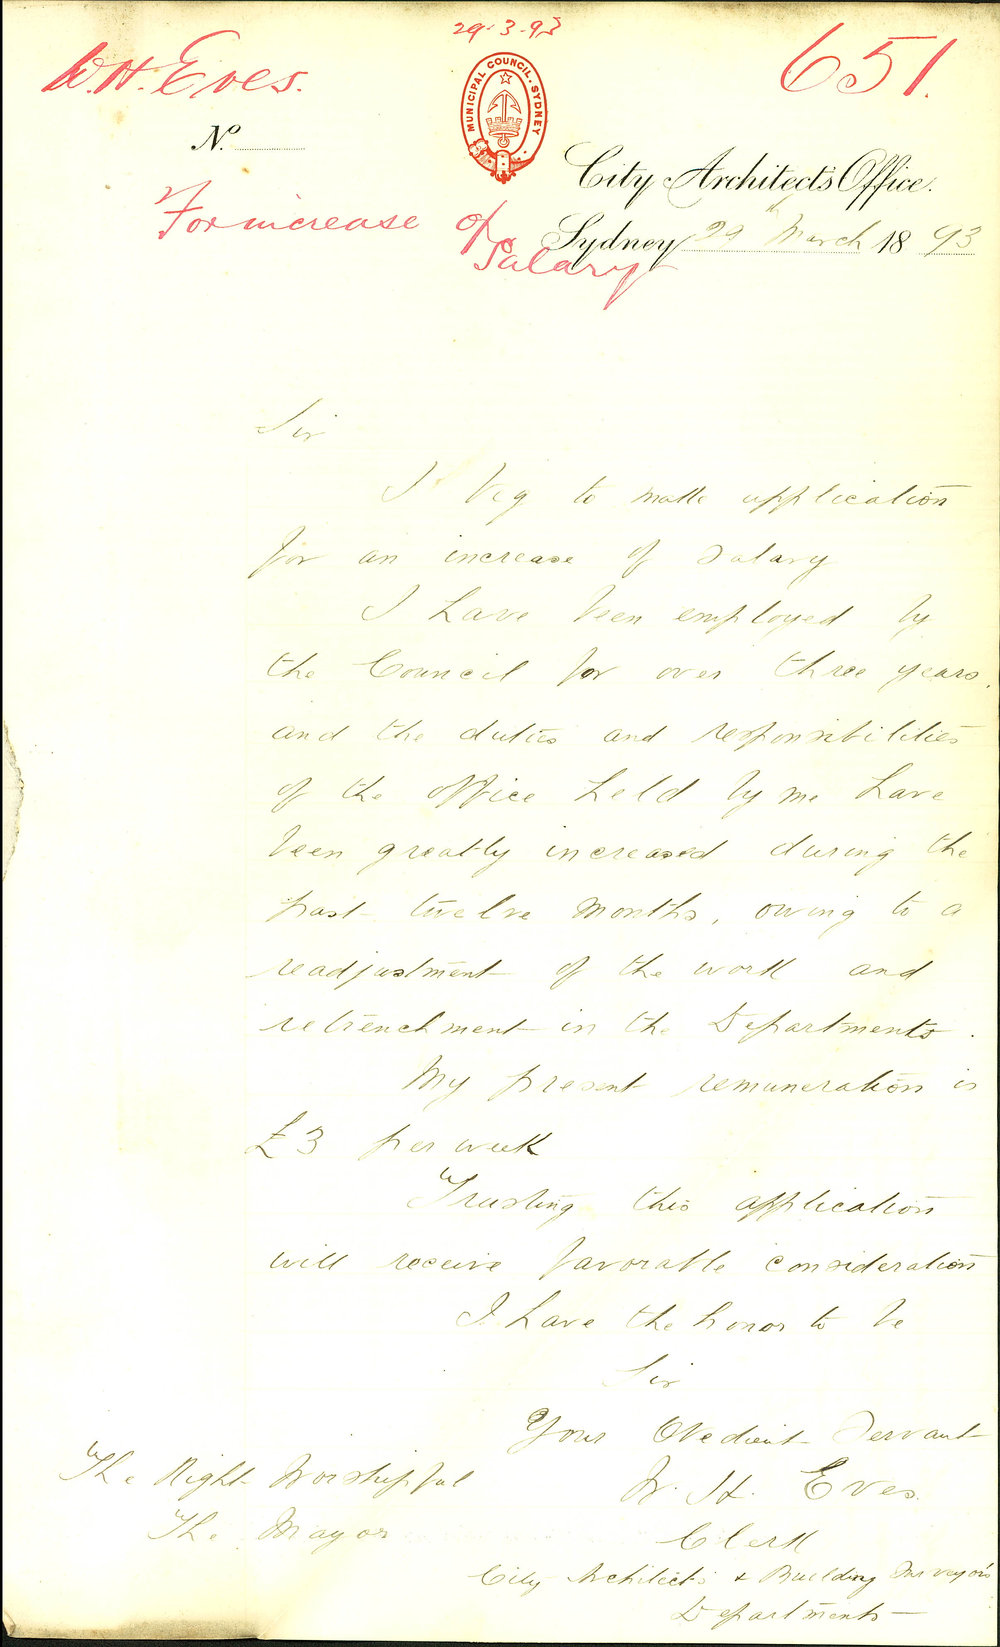 29.3.93
W.H. Eves.
651.
MUNICIPAL COUNCIL. SYDNEY
No.
City Architects Office.
For increase of
Salary
Sydney 29th March 1893
Sir
I beg to make application
for an increase of salary
I have been employed by
the Council for over three years,
and the duties and responsibilities
of the office held by me have
been greatly increased during the
past twelve months, owing to a
readjustment of the work and
retrenchment in the Departments.
My present remuneration is
£3 per week
Trusting this application
will receive favorable consideration
I have the honor to be
Sir
Your Obedient Servant
W. H. Eves.
Clerk
City Architect's & Building Surveyor's
Departments
The Right Worshipful
The Mayor